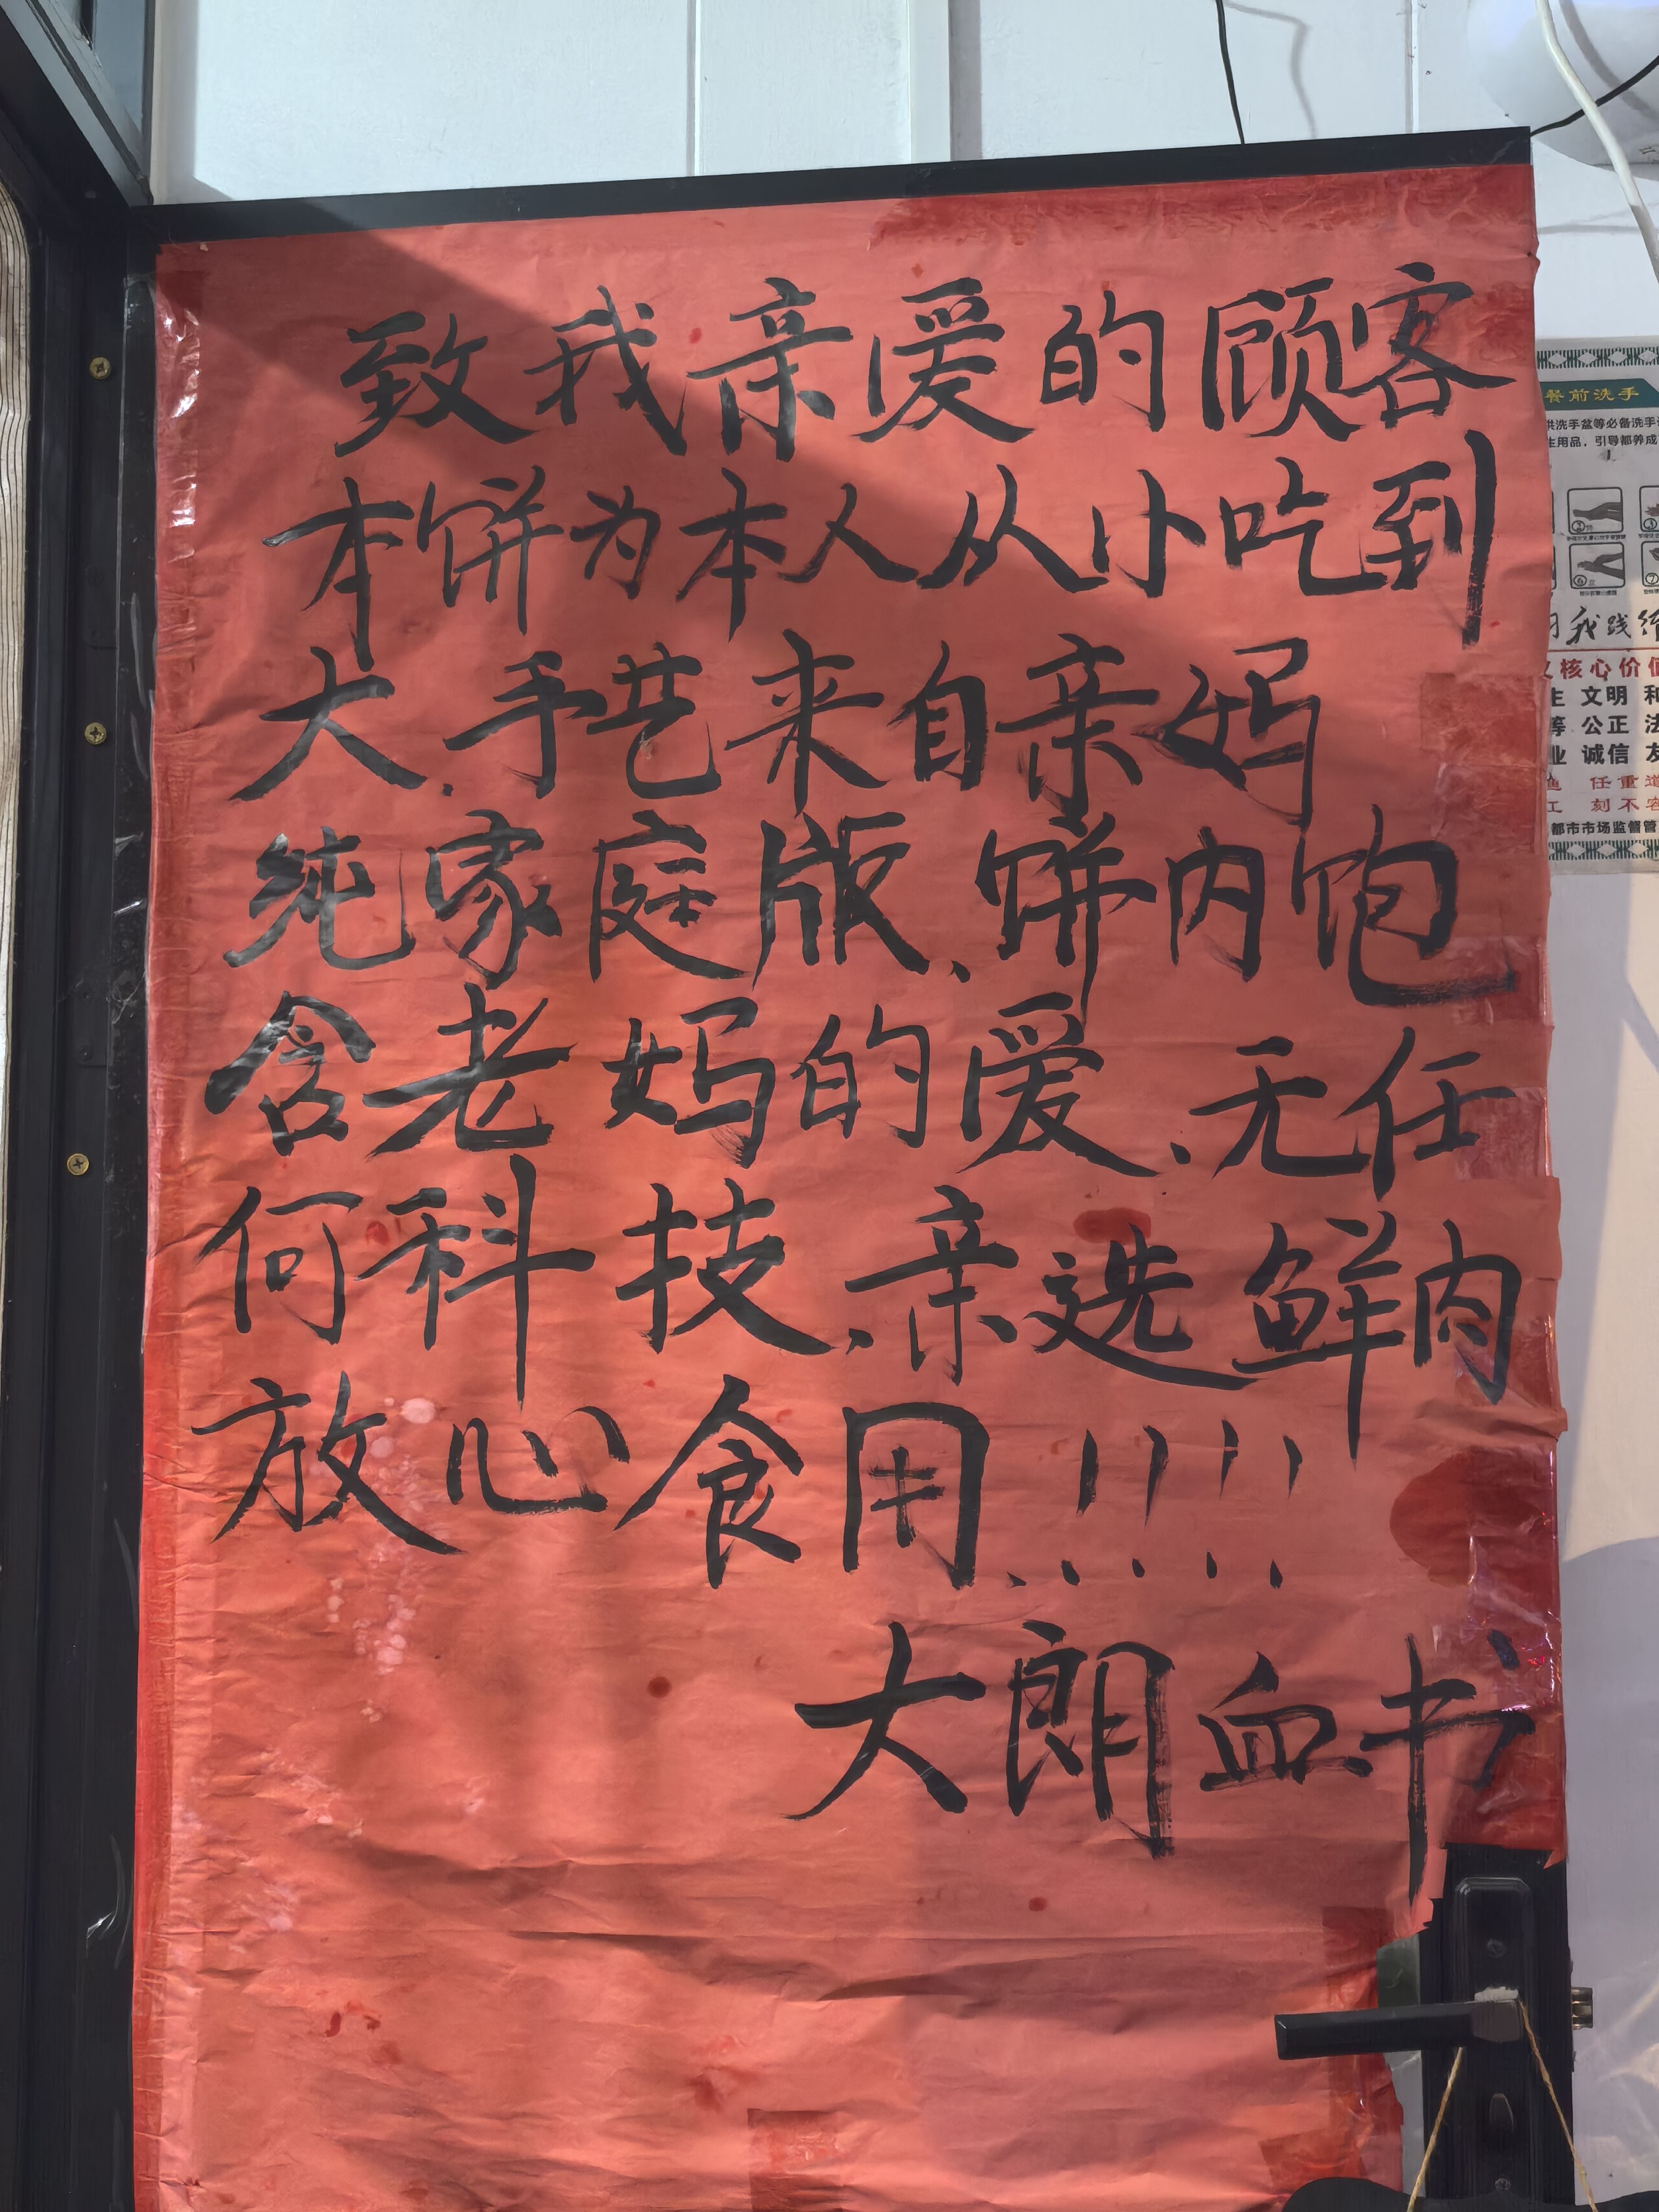 致我亲爱的顾客
本饼为本人从小吃到
大.手艺来自亲妈
纯家庭版、饼内饱
含老妈的爱、无任
何科技、亲选鲜肉
放心食用、!!!!
大朗血书
餐前洗手
洗手盆等必备洗手
生用品，引导都养成
我践
核心价值
文明 和
公正 法
诚信 友
任重道
刻不容
都市市场监督管